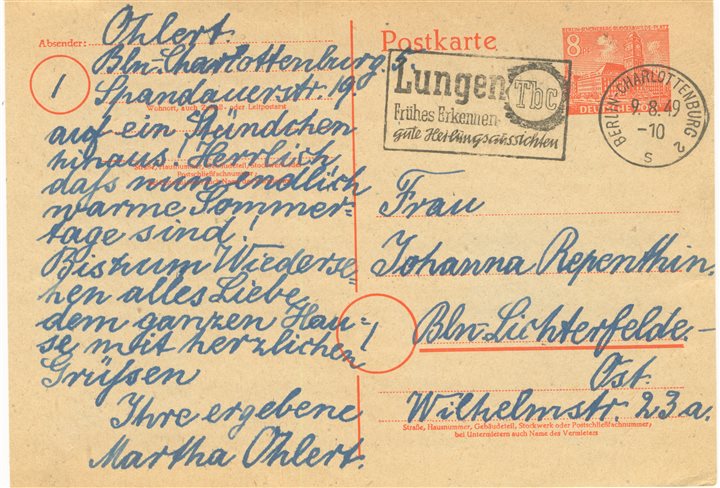 Absender:
Ohlert.
Bln.-Charlottenburg. 5.
Spandauerstr. 19
1
Wohnort, auch Zustell- oder Leitpostamt
auf ein Stündchen
hinaus! Herrlich
Straße, Hausnummer, Gebäudeteil, Stockwerk oder
Postschließfachnummer
daß nun endlich
warme Sommer=
tage sind!
Bis zum Wiederse=
hen alles Liebe
dem ganzen Hau=
se mit herzlichen
Grüssen
Ihre ergebene
Martha Ohlert.
Postkarte
Lungen Tbc
Frühes Erkennen-
gute Heilungsaussichten
8
DEUTSCHE
BERLIN-CHARLOTTENBURG 2
9.8.49
-10
S
Frau
Johanna Repenthin.
1
Bln-Lichterfelde.-
Ost.
Wilhelmstr. 23a.
Straße, Hausnummer, Gebäudeteil, Stockwerk oder Postschließfachnummer,
bei Untermietern auch Name des Vermieters